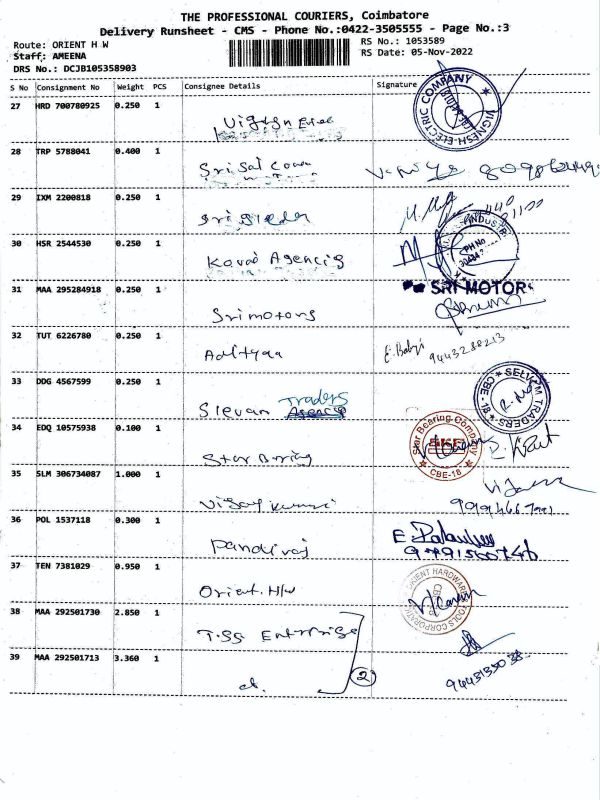 THE PROFESSIONAL COURIERS, Coimbatore
Delivery Runsheet - CMS - Phone No.:0422-3505555 - Page No.:3
Route: ORIENT H W
RS No.: 1053589
Staff: AMEENA
RS Date: 05-Nov-2022
DRS No.: DCJB105358903
S No Consignment No Weight PCS Consignee Details Signature
27 HRD 700780925 0.250 1
VIGNESH-ELECTRIC COMPANY
28 TRP 5788041 0.400 1
Sri Sai
29 IXM 2200818 0.250 1
Sri
30 HSR 2544530 0.250 1
Agencis
PH No
31 MAA 295284918 0.250 1
SRI MOTORS
Srimotors
32 TUT 6226780 0.250 1
Adityaa
E. Babji 9443288213
33 DDG 4567599 0.250 1
Slevan Traders
SELVAM TRADERS CBE - 18
34 EDQ 10575938 0.100 1
Star Bring
Star Bearing Company SKF CBE-18
35 SLM 306734087 1.000 1
Vijay kumar
36 POL 1537118 0.300 1
Pandiraj
37 TEN 7381029 0.950 1
Orient. H/w
ORIENT HARDWARE TOOLS CORPORATION
38 MAA 292501730 2.850 1
T.SS Enterprise
39 MAA 292501713 3.360 1
2